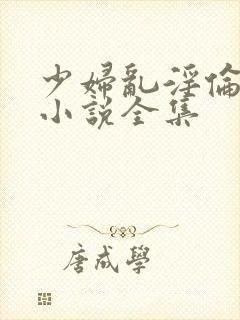 少婦亂淫倫
小說全集
唐成學